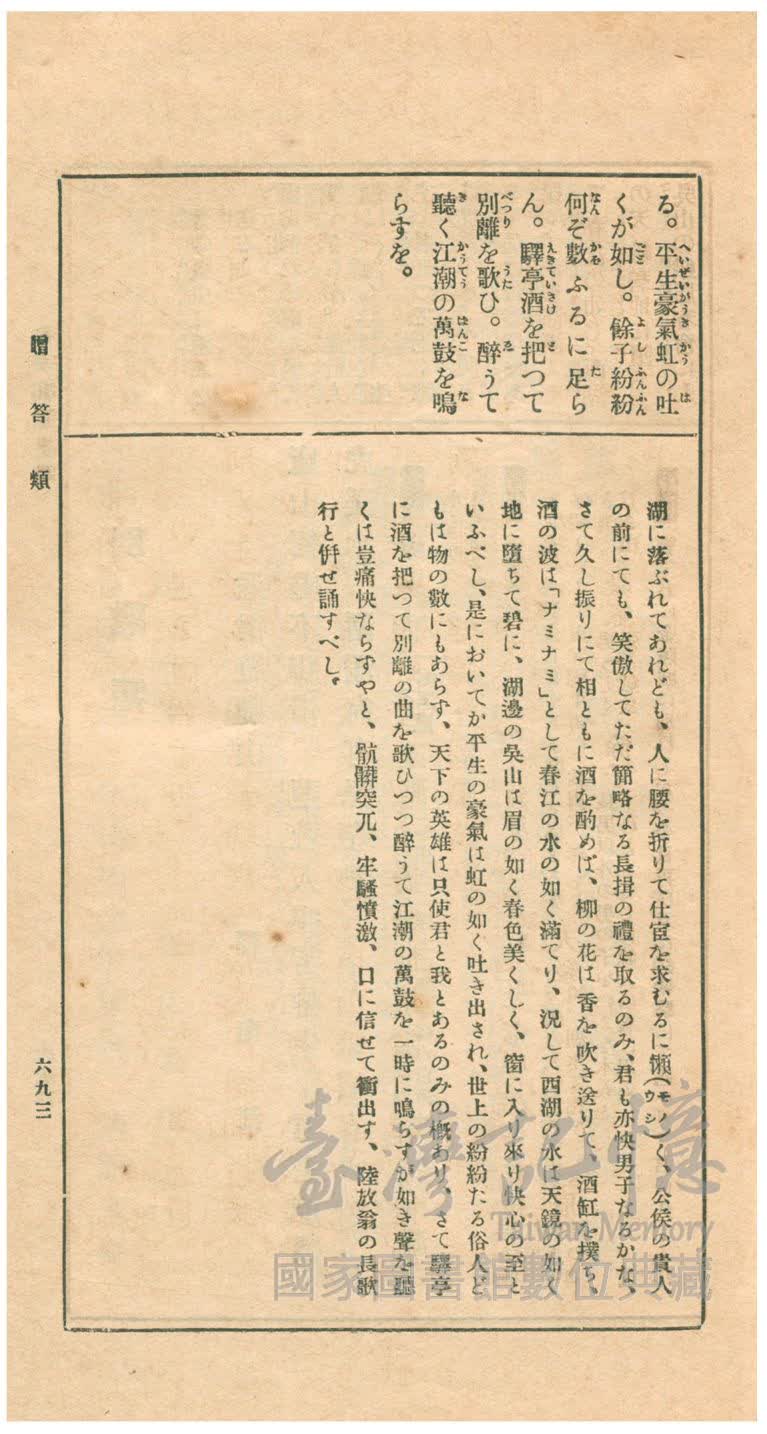 る。平生豪氣虹の吐
くが如し。餘子紛紛
何ぞ數ふるに足ら
ん。驛亭酒を把つて
別離を歌ひ。醉うて
聽く江潮の萬鼓を鳴
らすを。
湖に落ぶれてあれども、人に腰を折りて仕宦を求むるに懶(モノウシ)く、公侯の貴人
の前にても、笑傲してただ簡略なる長揖の禮を取るのみ、君も亦快男子なるかな、
さて久し振りにて相ともに酒を酌めば、柳の花は香を吹き送りて、酒缸を撲ち、
酒の波は「ナミナミ」として春江の水の如く滿てり、況して西湖の水は天鏡の如く
地に墮ちて碧に、湖邊の吳山は眉の如く春色美くしく、窗に入り來り快心の至と
いふべし、是においてか平生の豪氣は虹の如く吐き出され、世上の紛紛たる俗人ど
もは物の數にもあらず、天下の英雄は只使君と我とあるのみの概あり、さて驛亭
に酒を把つて別離の曲を歌ひつつ醉うて江潮の萬鼓を一時に鳴らすが如き聲を聽
くは豈痛快ならずやと、骯髒突兀、牢騷憤激、口に信せて衝出す、陸放翁の長歌
行と倂せ誦すべし。
贈答類
六九三
臺灣記憶
Taiwan Memory
國家圖書館數位典藏